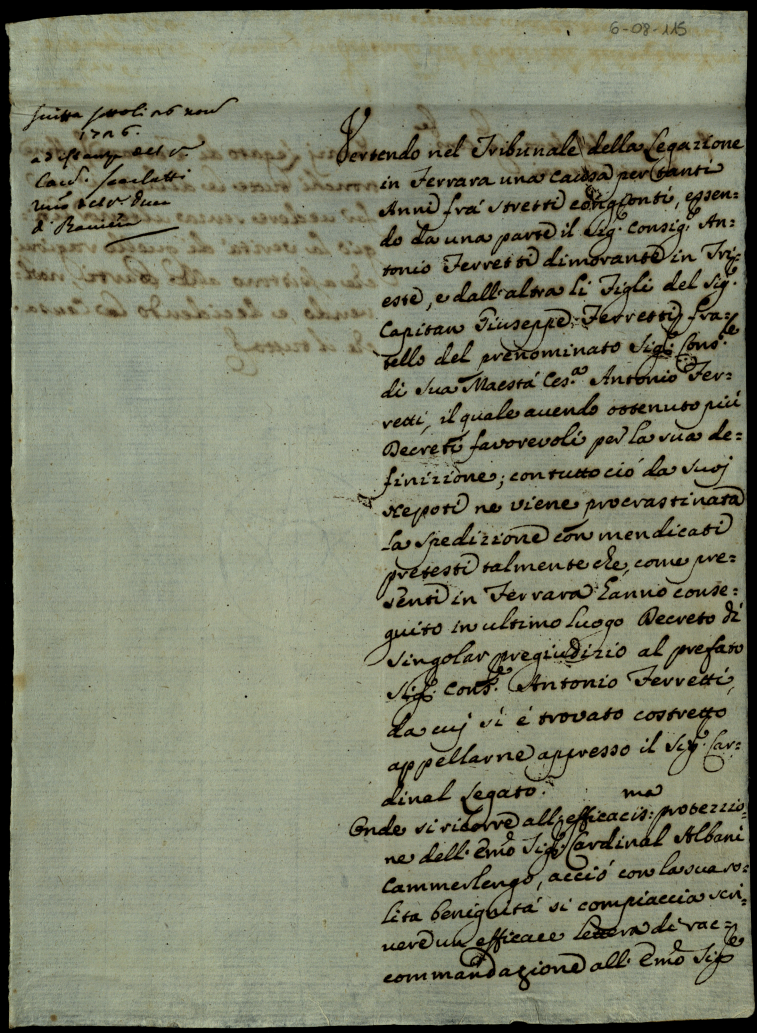 6-08-115
Vertendo nel Tribunale della Legazione
in Ferrara una causa per tanti
Anni frá stretti congionti, essen-
do da una parte il Sig.r Consig.r An-
tonio Ferretti dimorante in Tri-
este, e dall'altra li Figli del Sig.r
Capitan Giuseppe Ferretti fra-
tello del prenominato Sig.r Cons.re
di Sua Maestá Ces.a Antonio Fer-
retti, il quale avendo ottenuto piú
Decreti favorevoli per la sua de=
finizione; con tutto ció da suoj
Nepoti ne viene procrastinata
la spedizione con mendicati
pretesti talmente che, come pre-
senti in Ferrara hanno conse-
guito in ultimo luogo Decreto di
singolar pregiudizio al prefato
Sig.r Cons.re Antonio Ferretti,
da cuj si é trovato costretto
appellarne appresso il Sig.r Car-
dinal Legato.
Onde si ricorre all'efficacis:ma protezzio-
ne dell'Emo Sig.r Cardinal Albani
Cammerlengo, acció con la sua so-
lita benignitá si compiaccia scri-
vere un efficace lettera di rac-
commandazione all'Emo Sig.re
1726.